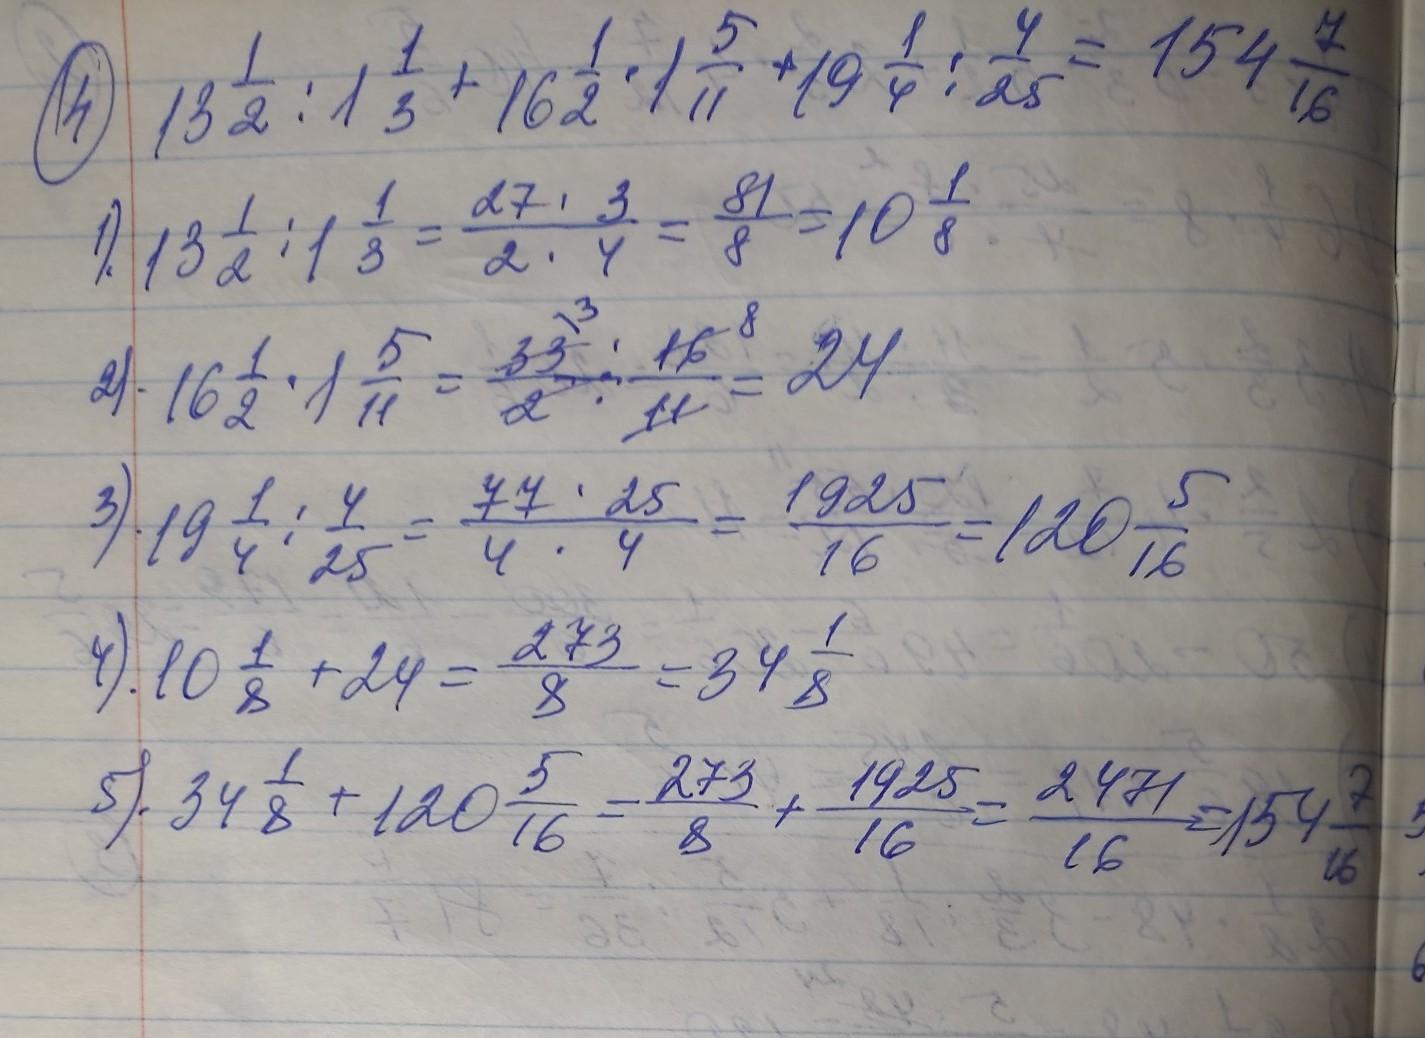 4 13 1/2 : 1 1/3 + 16 1/2 · 1 5/11 + 19 1/4 : 4/25 = 154 7/16
1). 13 1/2 : 1 1/3 = 27 · 3 / 2 · 4 = 81/8 = 10 1/8
2). 16 1/2 · 1 5/11 = 33 3 · 16 8 / 2 · 11 = 24
3). 19 1/4 : 4/25 = 77 · 25 / 4 · 4 = 1925/16 = 120 5/16
4). 10 1/8 + 24 = 273/8 = 34 1/8
5). 34 1/8 + 120 5/16 = 273/8 + 1925/16 = 2471/16 = 154 7/16